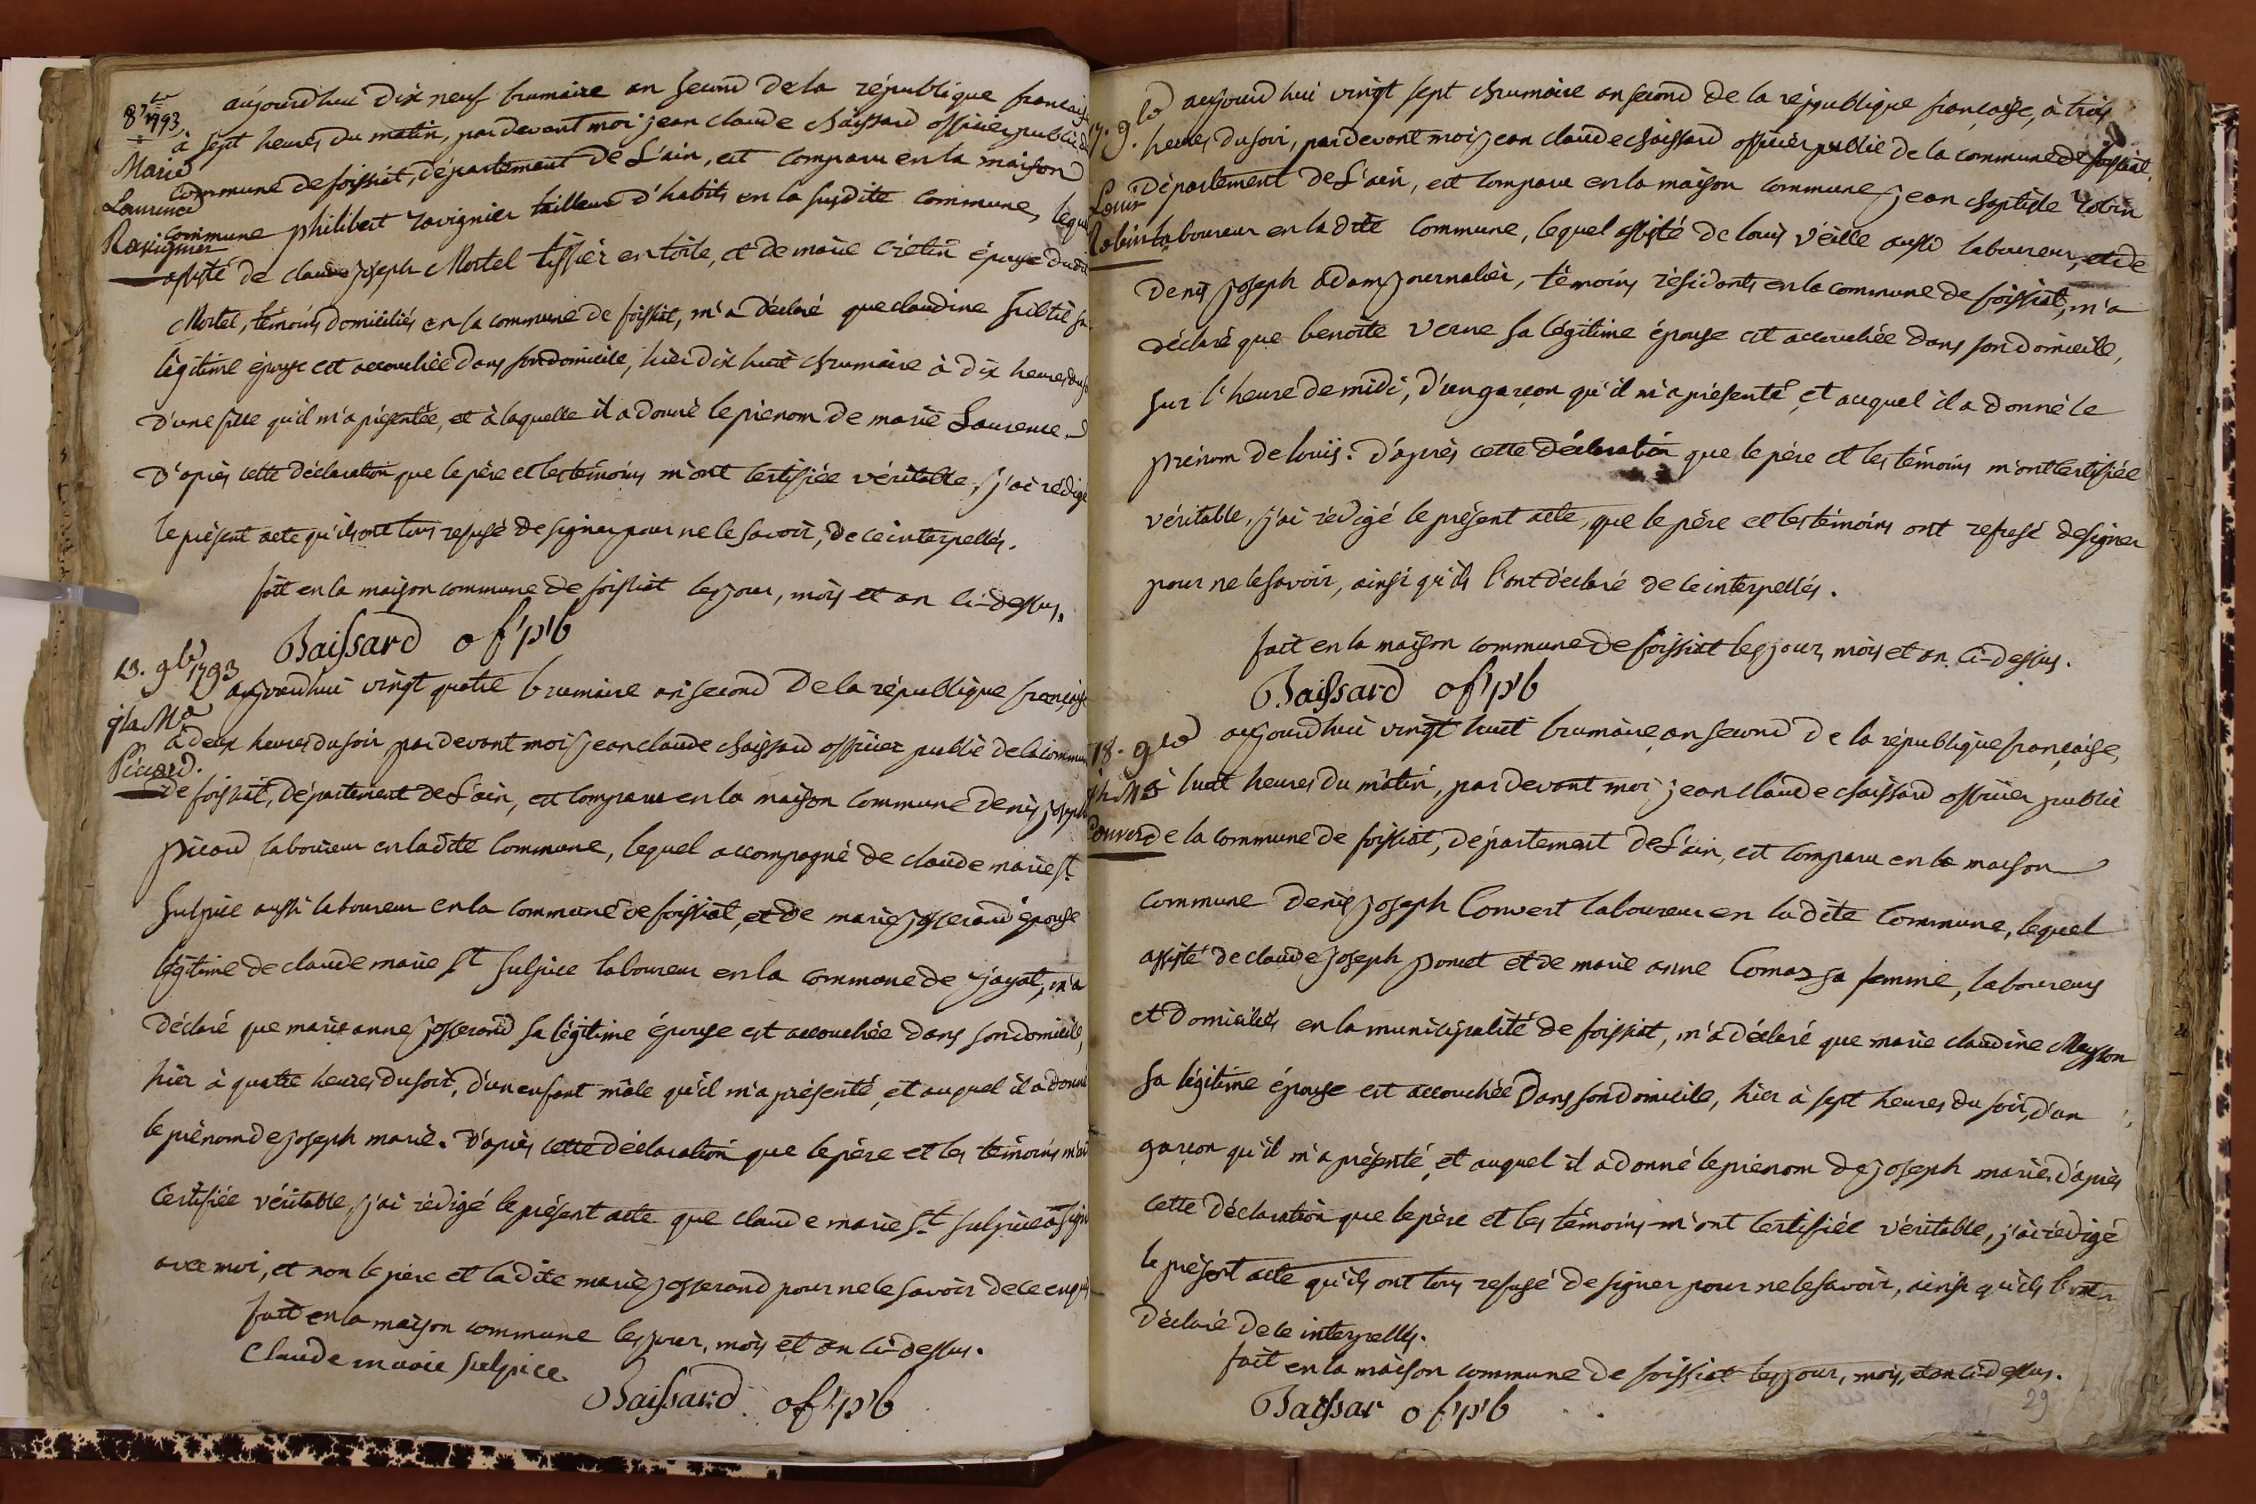 8 9bre 1793
Marie
Laurence
Ravignier
aujourd'hui dix neuf brumaire an second de la république française
à sept heures du matin, pardevant moi jean claude Baissard officier public de
commune de foissiat, département de L'ain, est comparu en la maison
commune philibert ravignier tailleur d'habits en la susdite commune, lequel
assisté de claude joseph Mortel tissier en toile, et de marie crétin épouse dudit
Mortel, témoins domiciliés en la commune de foissiat, m'a déclaré que claudine
légitime épouse est accouchée dans son domicile, hier dix huit brumaire à dix heures du
D'une fille qu'il m'a présentée, et à laquelle il a donné le prénom de marie Laurence
D'après cette déclaration que le père et les témoins m'ont certifiée véritable, j'ai rédigé
le présent acte qu'ils ont tous refusé de signer pour ne le savoir, de ce interpellés.
fait en la maison commune de foissiat les jour, mois et an ci-dessus.
Baissard of'p'b
13. 9bre 1793
jh Me
Picard.
aujourd'hui vingt quatre brumaire an second de la république française
à deux heures du soir pardevant moi jean claude Baissard officier public de la commune
de foissiat, département de L'ain, est comparu en la maison commune denis joseph
picard laboureur en ladite commune, lequel accompagné de claude marie St
Sulpice aussi laboureur en la commune de foissiat, et de marie josserand épouse
légitime de claude marie St Sulpice laboureur en la commune de jayat, m'a
déclaré que marie anne josserand sa légitime épouse est accouchée dans son domicile,
hier à quatre heures du soir, d'un enfant mâle qu'il m'a présenté, et auquel il a donné
le prénom de joseph marie. D'après cette déclaration que le père et les témoins m'ont
Certifiée véritable, j'ai rédigé le présent acte que claude marie St Sulpice a signé
avec moi, et non le père et ladite marie josserand pour ne le savoir de ce enquis
fait en la maison commune les jour, mois et an ci-dessus.
Claude marie sulpice
Baissard of'p'b
17. 9bre
Louis
Robin
aujourd'hui vingt sept brumaire an second de la république française, à trois
heures du soir, pardevant moi jean claude Baissard officier public de la commune de foissiat,
département de L'ain, est comparu en la maison commune jean baptiste robin
laboureur en ladite commune, lequel assisté de louis véille aussi laboureur, et de
denis joseph adam journalier, témoins résidants en la commune de foissiat, m'a
déclaré que benoite verne sa légitime épouse est accouchée dans son domicile,
sur l'heure de midi, d'un garçon qu'il m'a présenté, et auquel il a donné le
prénom de louis. D'après cette déclaration que le père et les témoins m'ont certifiée
véritable, j'ai rédigé le présent acte, que le père et les témoins ont refusé de signer
pour ne le savoir, ainsi qu'ils l'ont déclaré de ce interpellés.
fait en la maison commune de foissiat les jour, mois et an ci-dessus.
Baissard of'p'b
18. 9bre
jh Me
Convert
aujourd'hui vingt huit brumaire, an second de la république française,
à huit heures du matin, pardevant moi jean claude Baissard officier public
de la commune de foissiat, département de L'ain, est comparu en la maison
commune denis joseph Convert laboureur en ladite commune, lequel
assisté de claude joseph poncet et de marie anne Comas sa femme, laboureurs
et domiciliés en la municipalité de foissiat, m'a déclaré que marie claudine Maysson
sa légitime épouse est accouchée dans son domicile, hier à sept heures du soir, d'un
garçon qu'il m'a présenté, et auquel il a donné le prénom de joseph marie d'après
cette déclaration que le père et les témoins m'ont certifiée véritable, j'ai rédigé
le présent acte qu'ils ont tous refusé de signer pour ne le savoir, ainsi qu'ils l'ont
déclaré de ce interpellés.
fait en la maison commune de foissiat les jour, mois, et an ci-dessus.
Baissar of'p'b
29